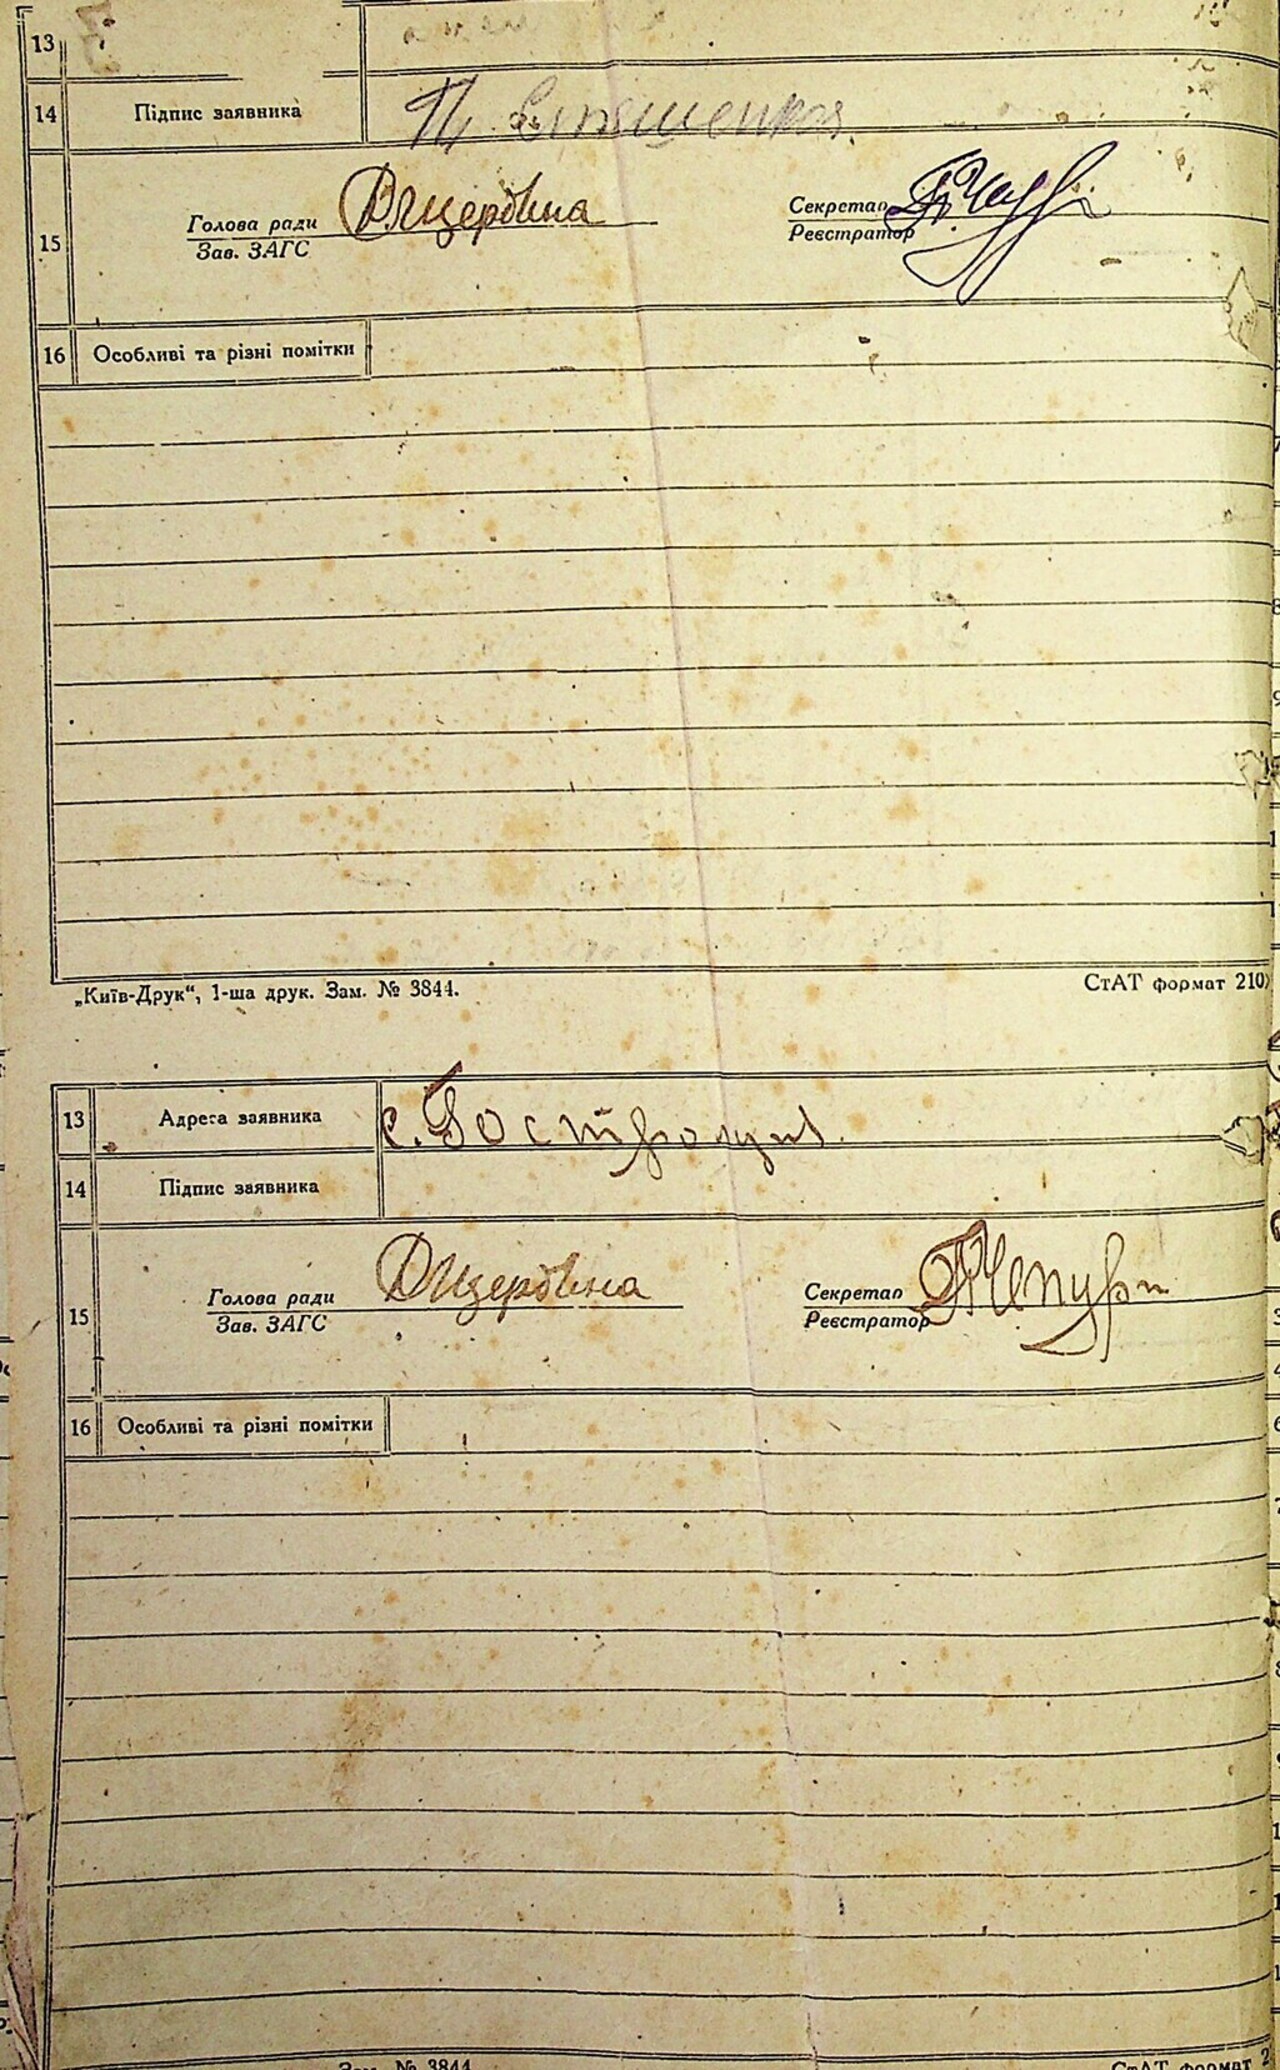 13
14 Підпис заявника
Голова ради Щербина Секретар
15 Зав. ЗАГС Реєстратор
16 Особливі та різні помітки
„Київ-Друк“, 1-ша друк. Зам. № 3844. СтАТ формат 210
13 Адреса заявника с. Гостролуччя
14 Підпис заявника
Голова ради Щербина Секретар Чепурн
15 Зав. ЗАГС Реєстратор
16 Особливі та різні помітки
Зам. № 3844 СтАТ формат 2